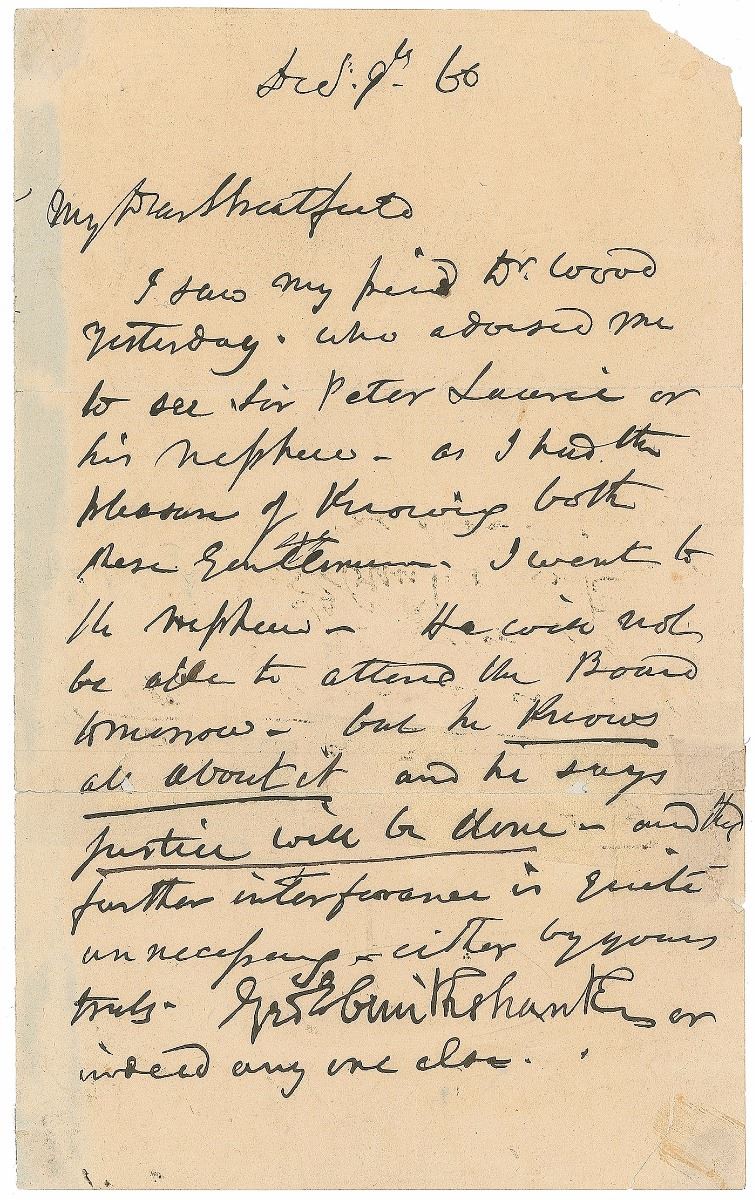 Decr. 9th 60
My Dear Streatfeild
I saw my friend Dr. Wood
yesterday. who advised me
to see Sir Peter Laurie or
his nephew – as I had the
pleasure of Knowing both
these Gentlemen. I went to
the nephew – He will not
be able to attend the Board
tomorrow – but he Knows
all about it and he says
justice will be done – and that
further interference is quite
unnecessary – either by yours
truly – Geo Cruikshank or
indeed any one else.